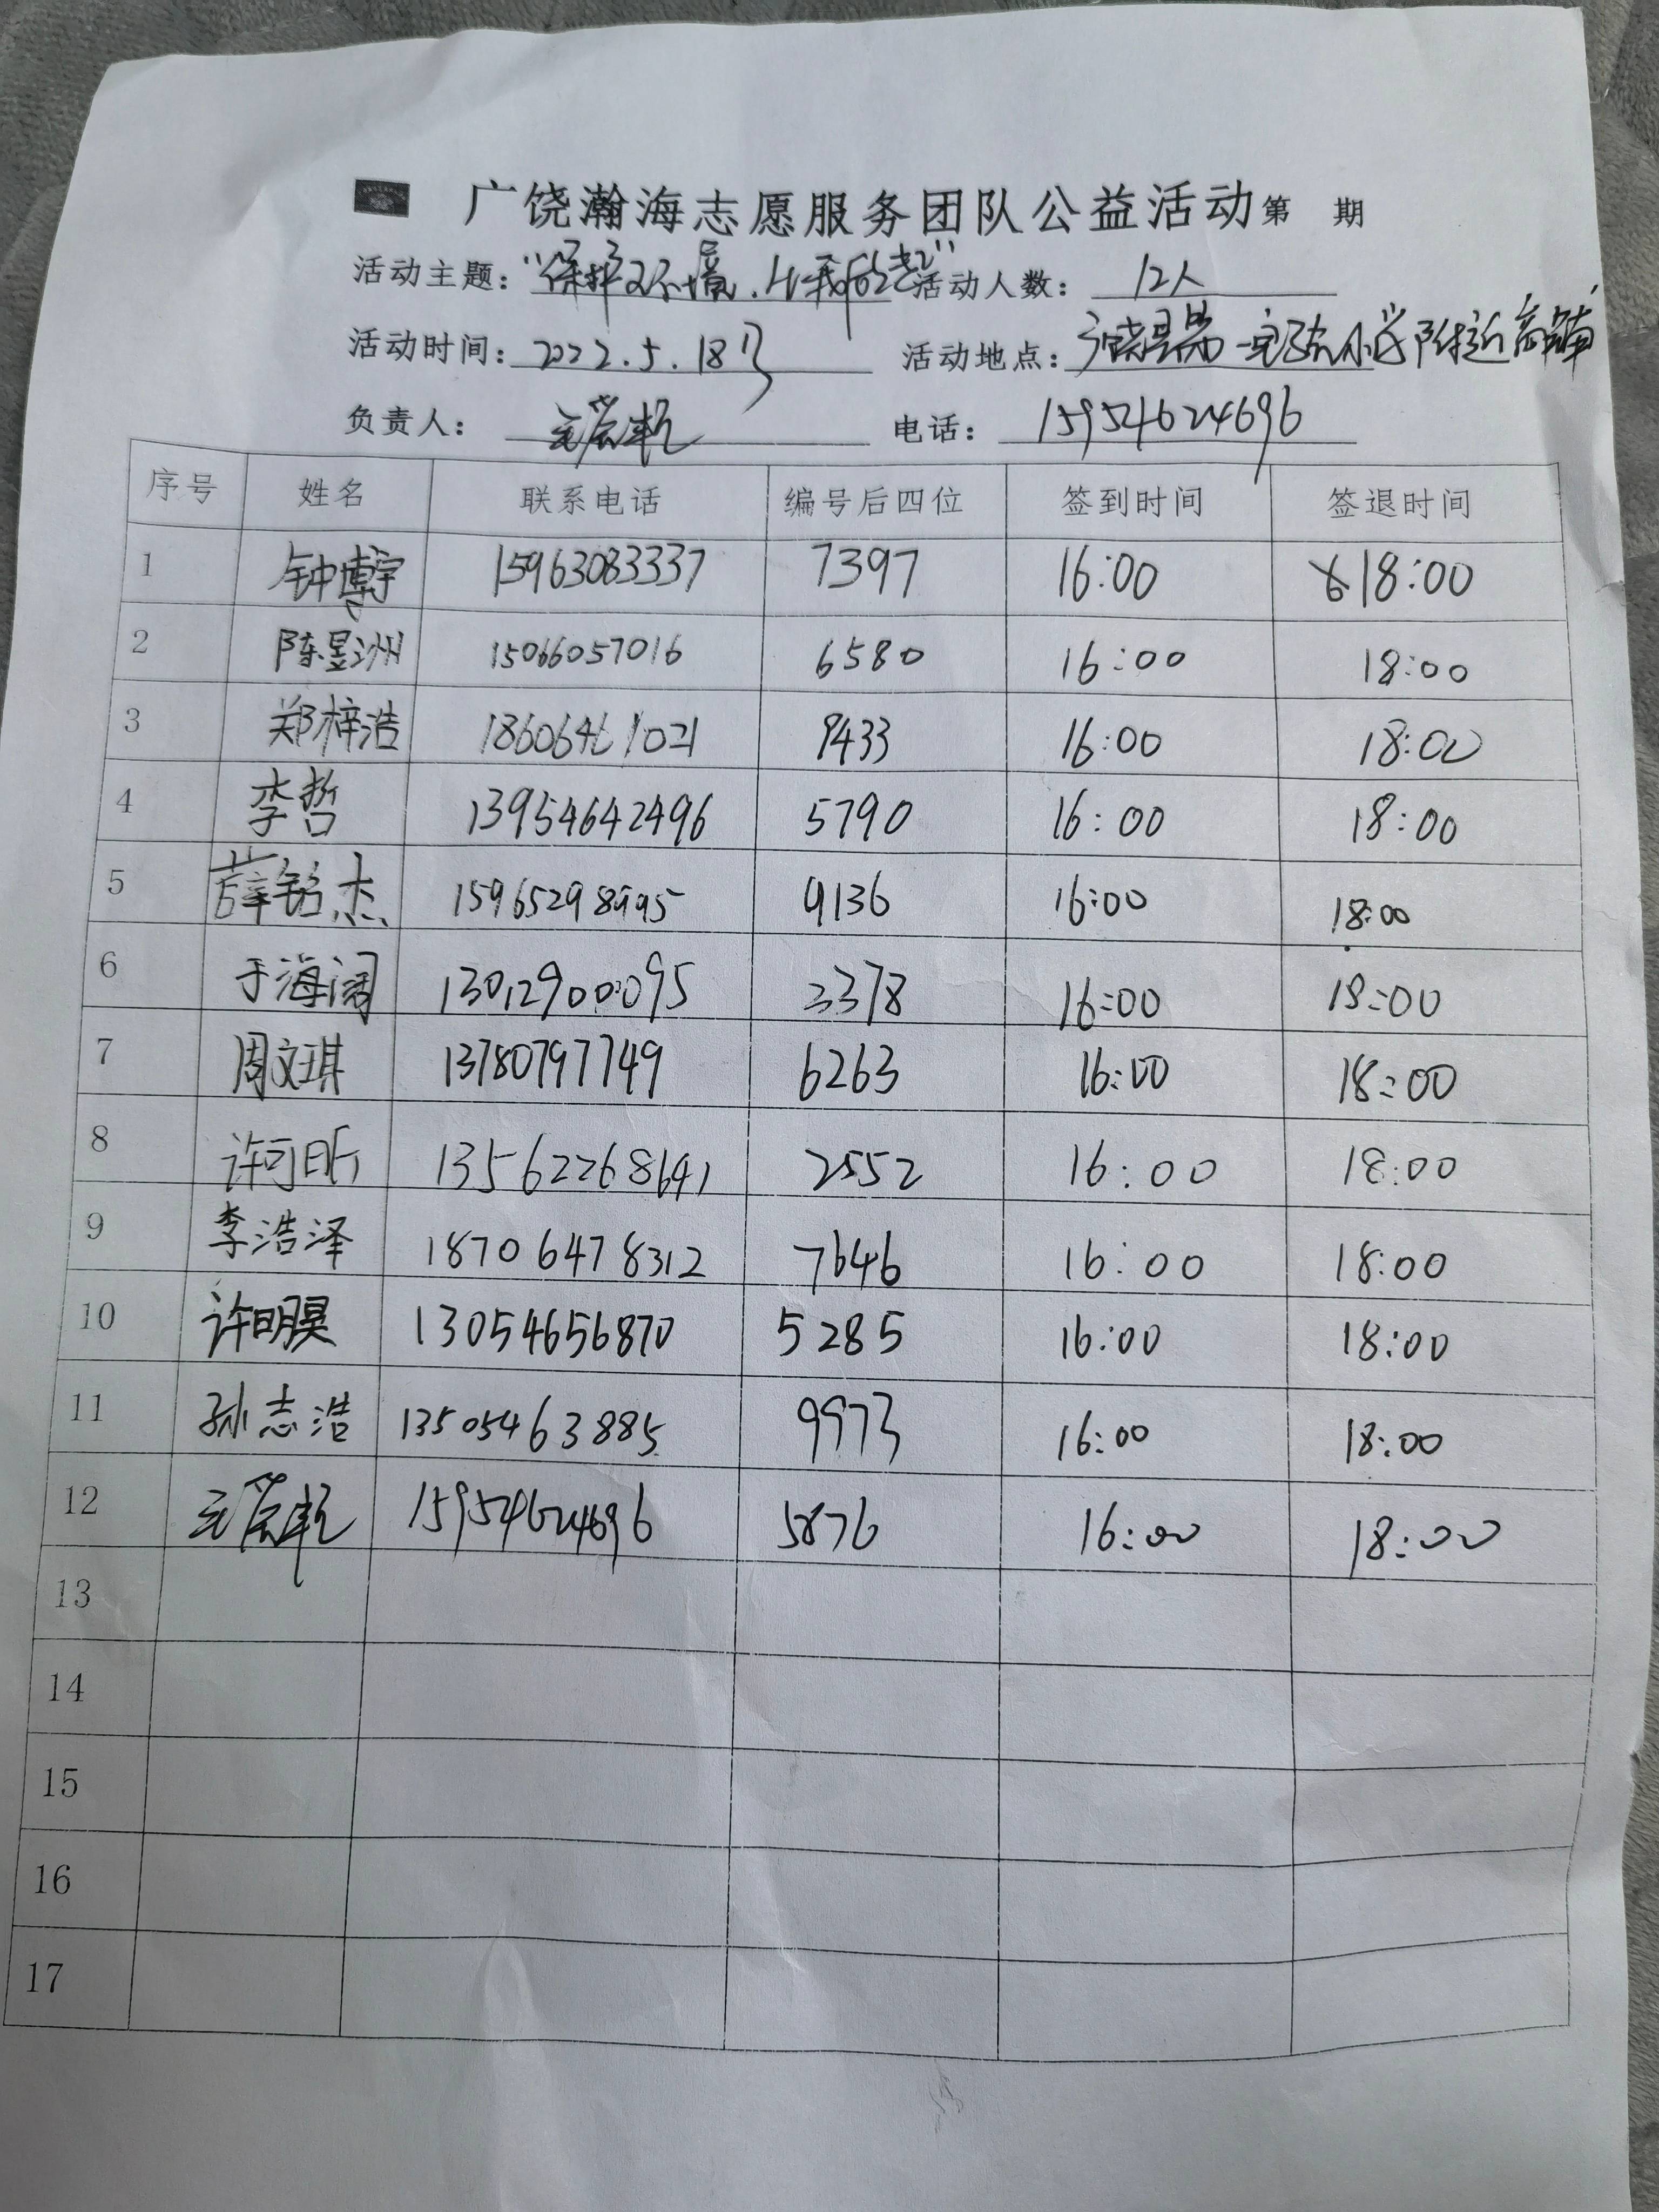 广饶瀚海志愿服务团队公益活动第 期
活动主题：“保护环境，从我做起” 活动人数： 12人
活动时间：2022.5.18日 活动地点：广饶县第一实验小学附近商铺
负责人： 电话：15954624696
序号 姓名 联系电话 编号后四位 签到时间 签退时间
1 钟博宇 15963083337 7397 16:00 18:00
2 陈昱洲 15066057016 6580 16:00 18:00
3 郑梓浩 18606461021 9433 16:00 18:00
4 李哲 13954642496 5790 16:00 18:00
5 薛铭杰 15965298995 9136 16:00 18:00
6 于海阔 13012900095 3378 16:00 18:00
7 周文琪 13780797749 6263 16:00 18:00
8 许可昕 13562268641 2552 16:00 18:00
9 李浩泽 18706478312 7646 16:00 18:00
10 许明昊 13054656870 5285 16:00 18:00
11 孙志浩 13505463885 9973 16:00 18:00
12 15954624696 5876 16:00 18:00
13
14
15
16
17